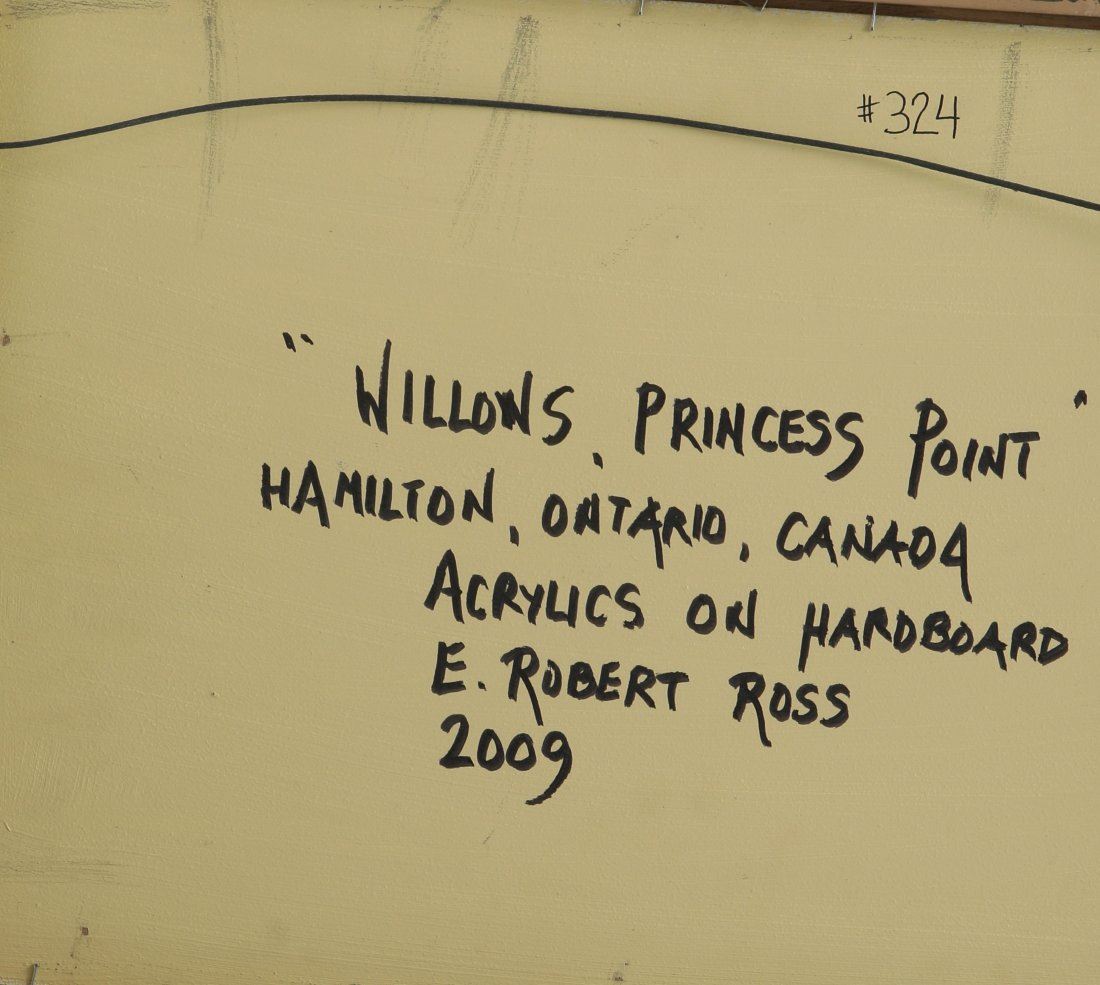 #324
" WILLOWS, PRINCESS POINT "
HAMILTON, ONTARIO, CANADA
ACRYLICS ON HARDBOARD
E. ROBERT ROSS
2009